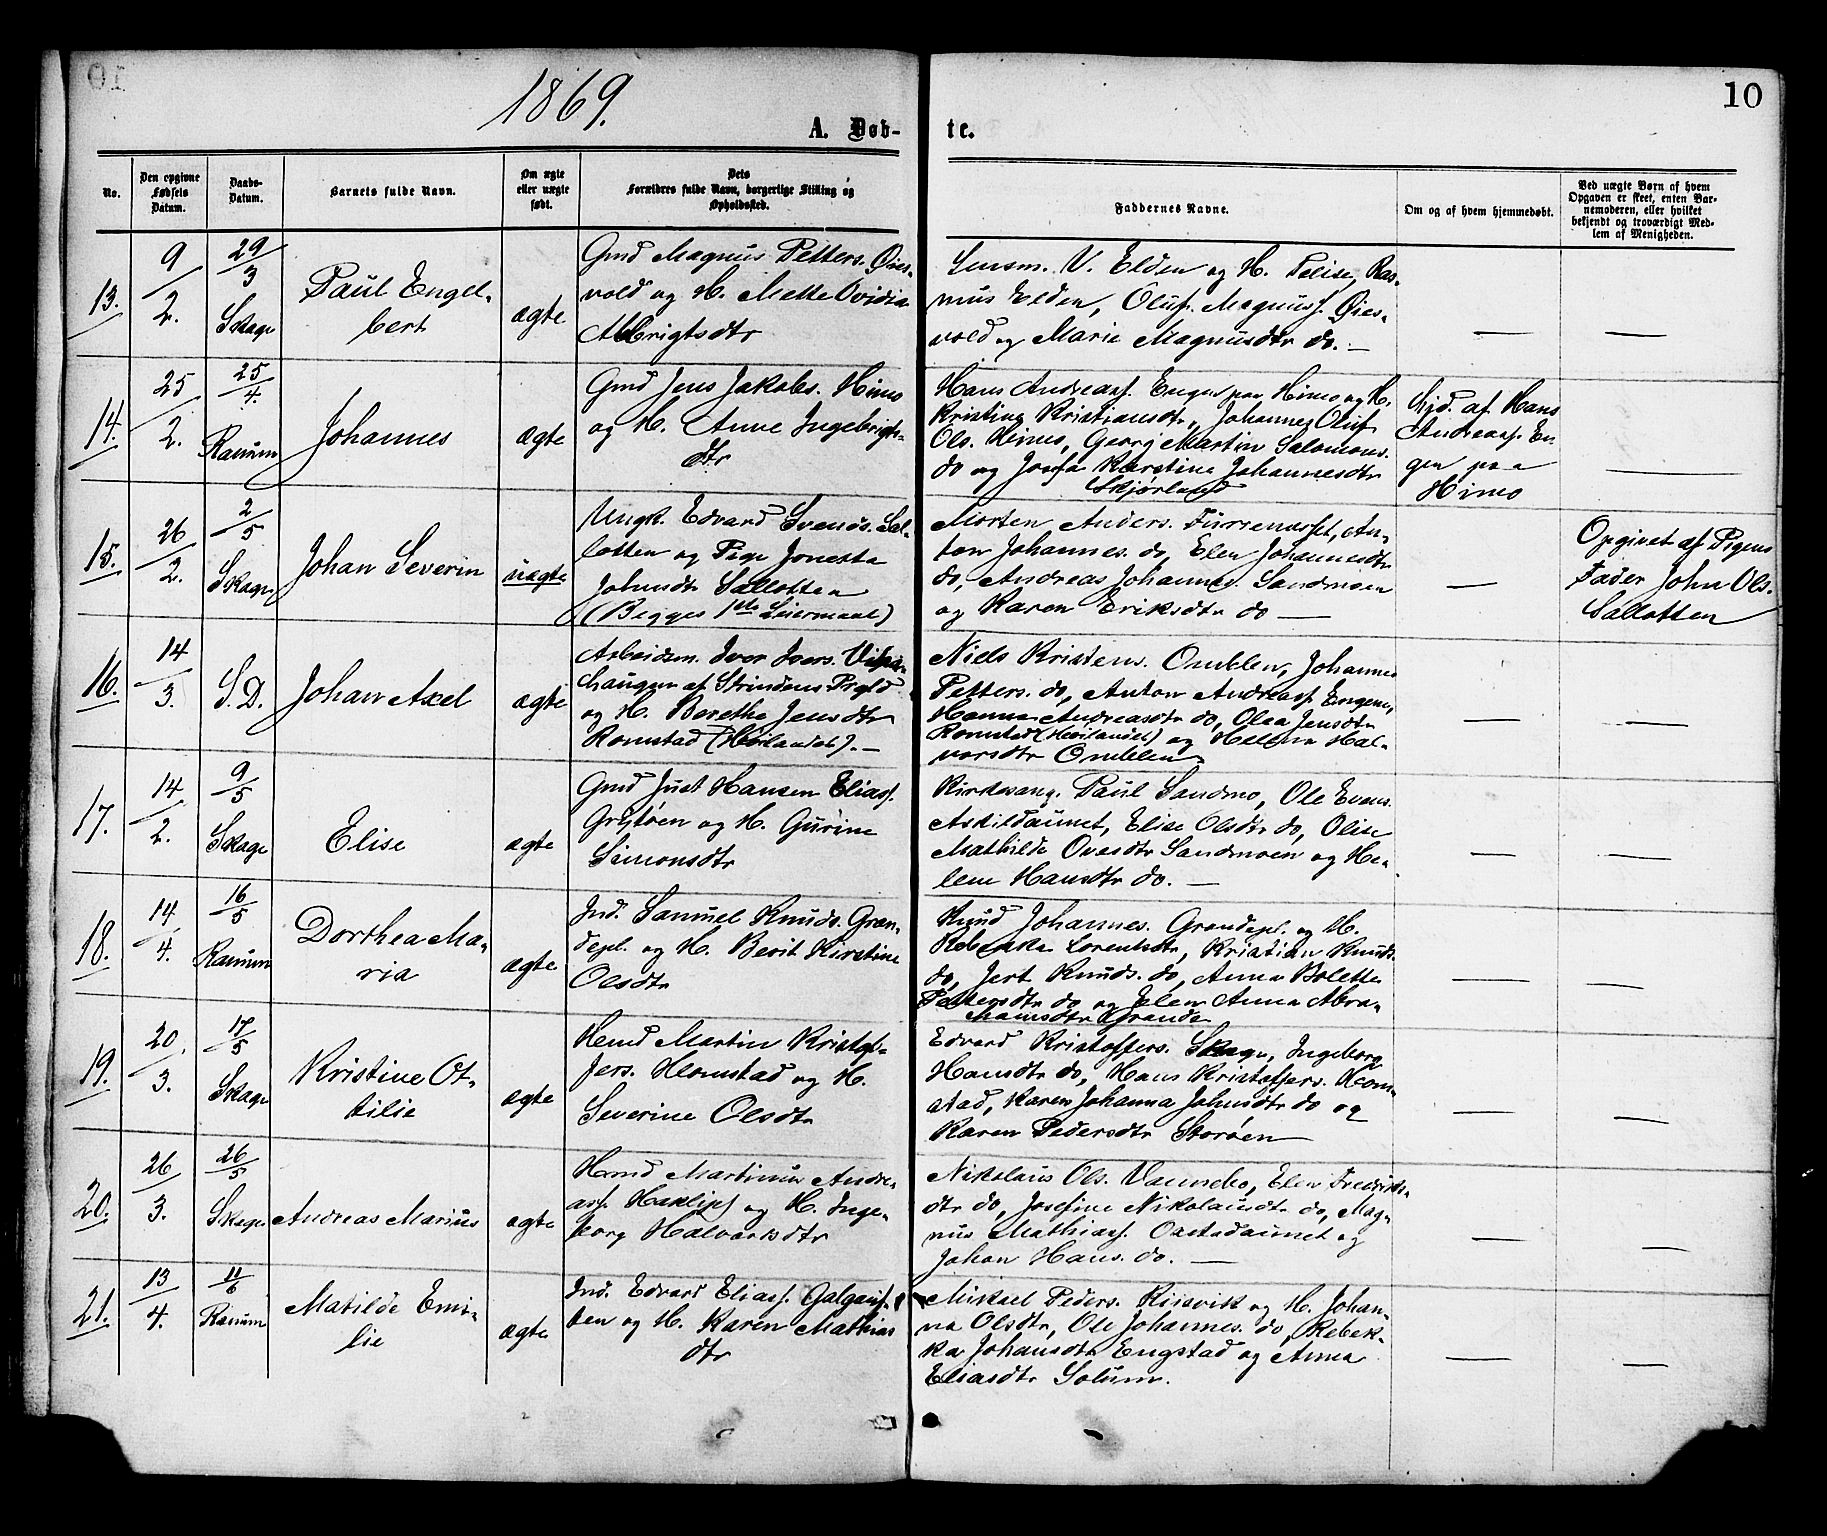 10
1869.
A. Døb-
te.
No.
Den opgivne
Fødsels
Datum.
Daabs-
Datum.
Barnets fulde Navn.
Om ægte
eller uægte
født.
Dets
Forældres fulde Navn, borgerlige Stilling og
Opholdssted.
Faddernes Navne.
Om og af hvem hjemmedøbt.
Ved uægte Børn af hvem
Opgaven er skeet, enten Bar-
nemoderen, eller hvilket
bekjendt og troværdigt Med-
lem af Menigheden.
13.
9/2.
29/3
Skage
Paul Engel-
bert
ægte
Gmd Magnus Petters. Øies-
vold og H. Mette Ovidia
Albrigtsdtr
Lensm. V. Elden og H. Felise, Ras-
mus Elden, Oluf Magnuss. Øies-
vold og Marie Magnusdtr do. —
—
—
14.
25/2.
25/4.
Ranum
Johannes
ægte
Gmd Jens Jakobs. Himo
og H. Anne Ingebrigts-
dtr
Hans Andreass. Engen paa Himo og H.
Kristina Kristiansdtr, Johannes Oluf
Ols. Himo, Georg Martin Salomons.
do og Josefa Karstine Johannesdtr
Skjørland
Hjd. af Hans
Andreass. En-
gen paa
Himo
—
15.
26/2.
2/5
Skage
Johan Severin
uægte
Ungk. Edvard Svends. Sal-
lotten og Pige Jonetta
Johnsdtr Sallotten
(Begges 1ste Leiermaal)
Morten Anders. Furrenasset, An-
ton Johannes. do, Elen Johannesdtr
do, Andreas Johannes. Sandmoen
og Karen Eriksdtr do —
—
Opgivet af Pigens
Fader John Ols.
Sallotten
16.
14/3.
S.D.
Johan Axel
ægte
Arbeidsm. Iver Ivers.
haugen af Strindens Prgld
og H. Berethe Jensdtr
Romstad (Høilandet). —
Niels Kristens. Omblen, Johannes
Petters. do, Anton Andreass. Engen,
Hanna Andreasdtr do, Olaa Jensdtr
Romstad (Høilandet) og Helena Hal-
vorsdtr Omblen
—
—
17.
14/2.
9/5
Skage
Elise
ægte
Gmd Just Hansen Eliass.
Grytøen og H. Gurine
Simonsdtr
Kirkesang. Paul Sandmo, Ole Evens.
Askildaunet, Elise Olsdtr do, Olise
Mathilde Ovesdtr Sandmoen og He-
lene Hansdtr do. —
—
—
18.
14/4.
16/5
Ranum
Dorthea Ma-
ria
ægte
Ind. Samuel Knuds. Gran-
depl. og H. Berit Kirstine
Olsdtr
Knud Johannes. Grandepl. og H.
Rebekka Lorentsdtr, Kristian Knuds.
do, Jert Knuds. do, Anna Bolette
Pettersdtr do og Elen Anna Abra-
hamsdtr Grande
—
—
19.
20/3.
17/5
Skage
Kristine Ot-
tilie
ægte
Hmd Martin Kristof-
fers. Homstad og H.
Severine Olsdtr
Edvard Kristoffers. Skage, Ingeborg
Hansdtr do, Hans Kristoffers. Hom-
stad, Karen Johanna Johnsdtr do og
Karen Pedersdtr Storøen
—
—
20.
26/3.
26/5
Skage
Andreas Marius
ægte
Hmd Martinus Andre-
ass. Haklips og H. Inge-
borg Halvarsdtr
Nikolaus Ols. Vannebo, Elen Fredriks-
dtr do, Josefine Nikolausdtr do, Mag-
nus Mathiass. Oastadaunet og
Johan Hans. do. —
—
—
21.
13/4.
11/6
Ranum
Matilde Emi-
lie
ægte
Ind. Edvard Eliass. Galgauf-
ten og H. Karen Mathias
dtr
Mikael Peders. Risavik og H. Johan-
na Olsdtr, Ole Johannes. do, Rebek-
ka Johansdtr Engstad og Anna
Eliasdtr Solum.
—
—